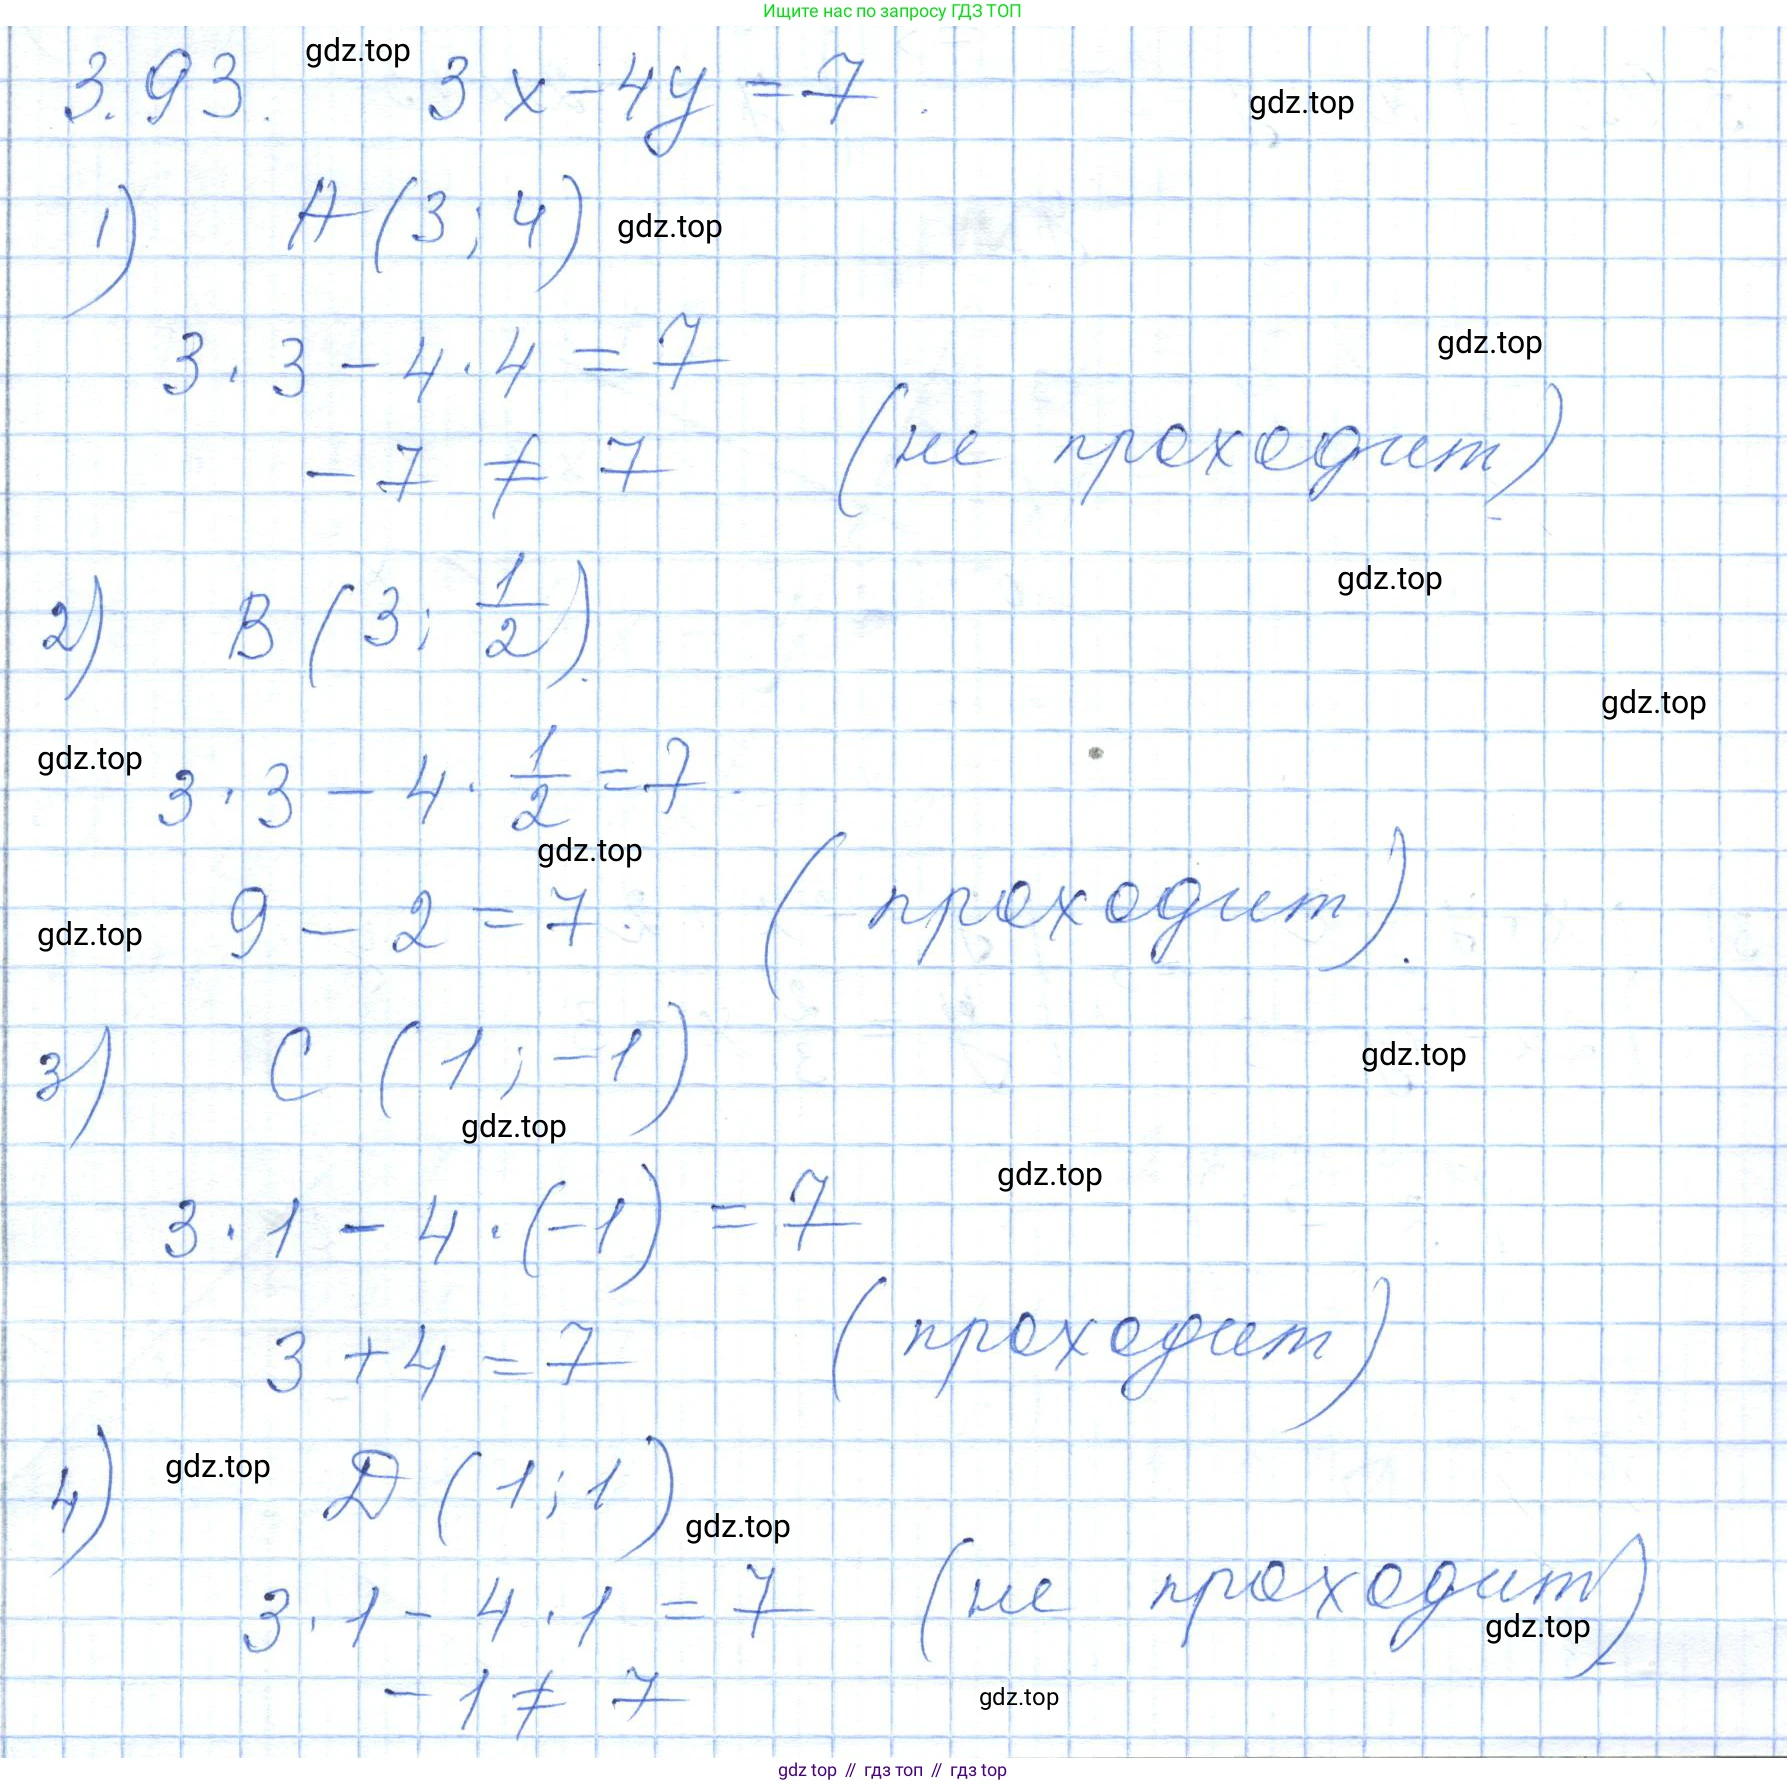 Ищите нас по запросу ГДЗ ТОП
3.93. gdz.top 3x-4y=7.
gdz.top
1) A(3;4) gdz.top
gdz.top
3·3-4·4=7
-7≠7 (не проходит)
gdz.top
2) B(3; 1/2).
gdz.top
gdz.top 3·3-4·1/2=7.
gdz.top
gdz.top 9-2=7. (проходит).
3) C(1;-1)
gdz.top
gdz.top
gdz.top
3·1-4·(-1)=7
3+4=7 (проходит)
4) gdz.top D(1;1)
gdz.top
3·1-4·1=7 (не проходит)
gdz.top
-1≠7
gdz.top
gdz top // гдз топ // гдз top